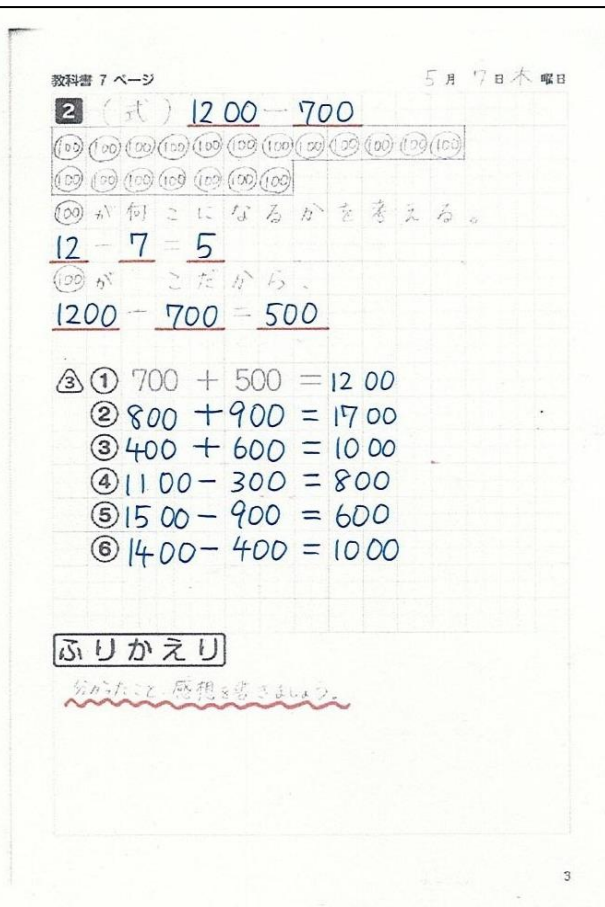 教科書 7 ページ 5月 7日 木曜日
2 (式) 1200 - 700
100 100 100 100 100 100 100 100 100 100 100 100
100 100 100 100 100 100 100
100が何こになるかを考える。
12 - 7 = 5
100が こだから、
1200 - 700 = 500
3 ① 700 + 500 = 1200
② 800 + 900 = 1700
③ 400 + 600 = 1000
④ 1100 - 300 = 800
⑤ 1500 - 900 = 600
⑥ 1400 - 400 = 1000
ふりかえり
分かったこと、感想を書きましょう。
3